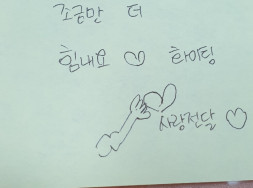 조금만 더
힘내요 ♡ 화이팅
사랑전달 ♡